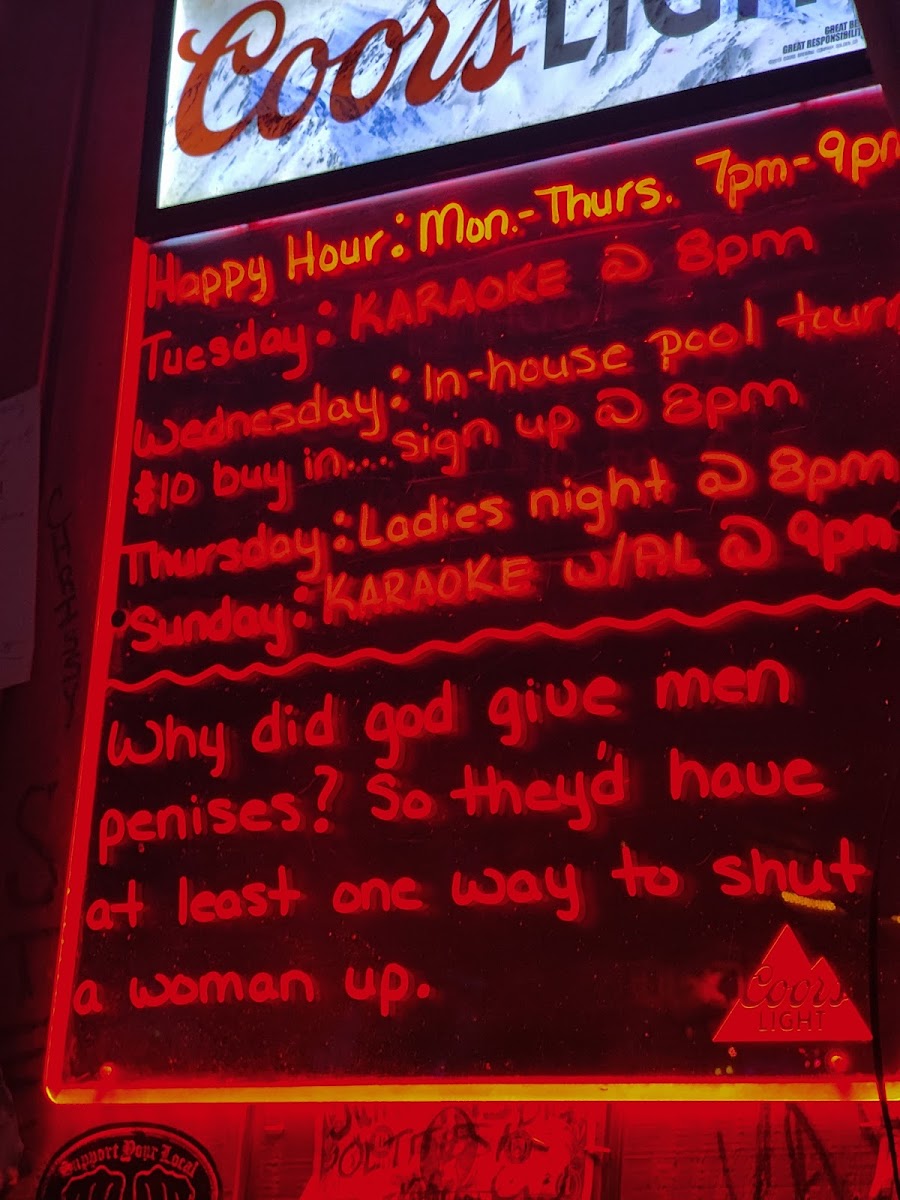 Coors LIGHT
GREAT RESPONSIBILIT
Happy Hour: Mon.-Thurs. 7pm-9pm
Tuesday: KARAOKE @ 8pm
Wednesday: In-house pool tourn
$10 buy in.... sign up @ 8pm
Thursday: Ladies night @ 8pm
Sunday: KARAOKE w/AL @ 9pm
Why did god give men
penises? So they'd have
at least one way to shut
a woman up.
Coors
LIGHT
Support Your Local